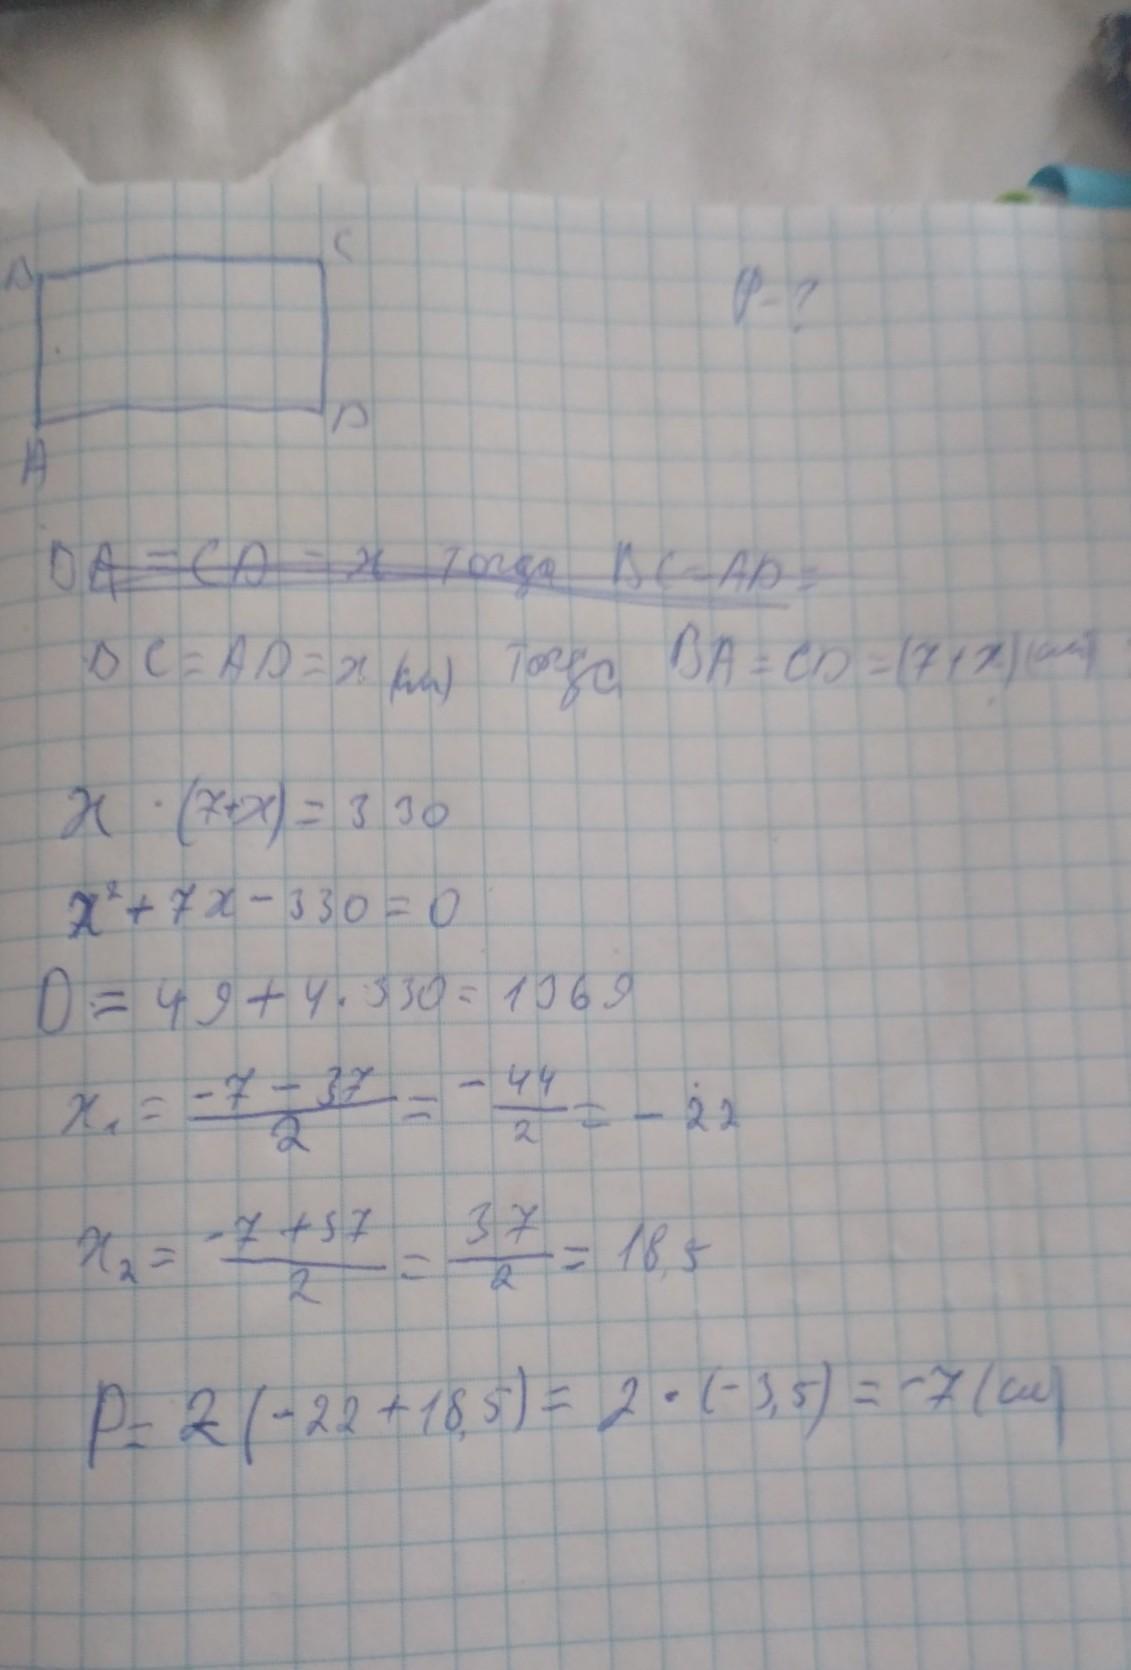 B C
P-?
A D
BA = CD = x Тогда BC = AD =
BC = AD = x (см) Тогда BA = CD = (7+x) (см)
x · (7+x) = 330
x² + 7x - 330 = 0
D = 49 + 4 · 330 = 1369
x₁ = (-7 - 37)/2 = -44/2 = -22
x₂ = (-7 + 37)/2 = 37/2 = 18,5
P = 2 (-22 + 18,5) = 2 · (-3,5) = -7 (см)